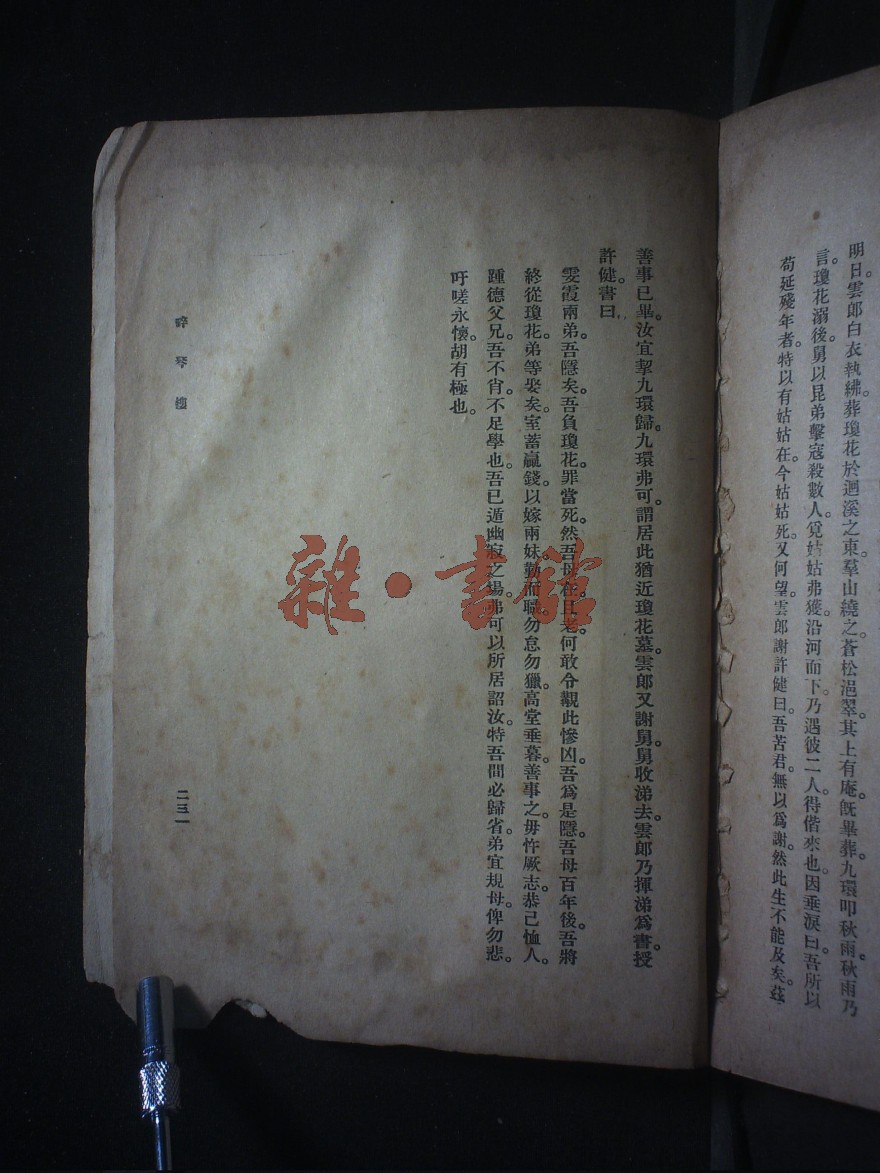 明日雲郎白衣執紼葬瓊花於迴溪之東。羣山繞之。蒼松浥翠。其上有庵。旣畢葬。九環叩秋雨。秋雨乃
言。瓊花溺後。舅以昆弟擊寇殺數人。覓姑姑弗獲。沿河而下。乃遇彼二人。得偕來也。因垂淚曰。吾所以
苟延殘年者。特以有姑姑在。今姑姑死。又何望。雲郎謝許健曰。吾苦君。無以爲謝。然此生不能及矣。茲
善事已畢。汝宜挈九環歸。九環弗可。謂居此猶近瓊花墓。雲郎又謝舅。舅收涕去。雲郎乃揮涕爲書。授
許健。書曰。
雯霞兩弟。吾隱矣。吾負瓊花。罪當死。然吾母在且老。何敢令覯此慘凶。吾爲是隱。吾母百年後。吾將
終從瓊花。弟等娶矣。室蓄贏錢。以嫁兩妹。勤而職。勿怠勿獵。高堂垂暮。善事之。毋忤厥志。恭己恤人。
踵德父兄。吾不肖。不足學也。吾已遁幽寂之場。弗可以所居詔汝。特吾間必歸省。弟宜規母。俾勿悲。
吁嗟永懷。胡有極也。
碎琴樓
二三一
雜·書館